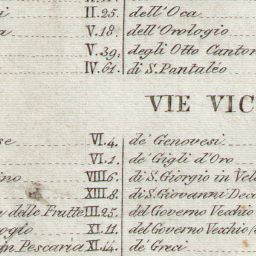 II.25. dell'Oca
V.18. dell'Orologio
V.39. degli Otto Canton
IV.61. di S. Pantaléo
VIE VIC
VI.4. de' Genovesi
VI.1. de' Gigli d'Oro
VIII.6. di S. Giorgio in Vel
XIII.8. di S. Giovanni Dec
delle Frutte III.25. del Governo Vecchio
XI.11. del Governo Vecchio
Pescaria XI.14. de' Greci